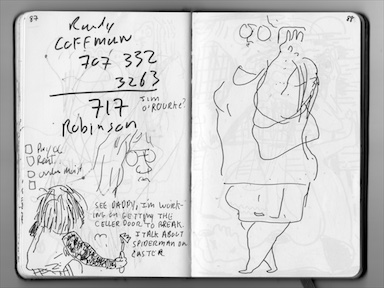 87
Randy
COFFMAN
707 332
3263
717
Robinson
JIM
O'ROURKE?
Rent
SEE DADDY, I'M WORK-
ING ON GETTING THE
CELLER DOOR TO BREAK.
I TALK ABOUT
SPIDERMAN ON
EASTER
88